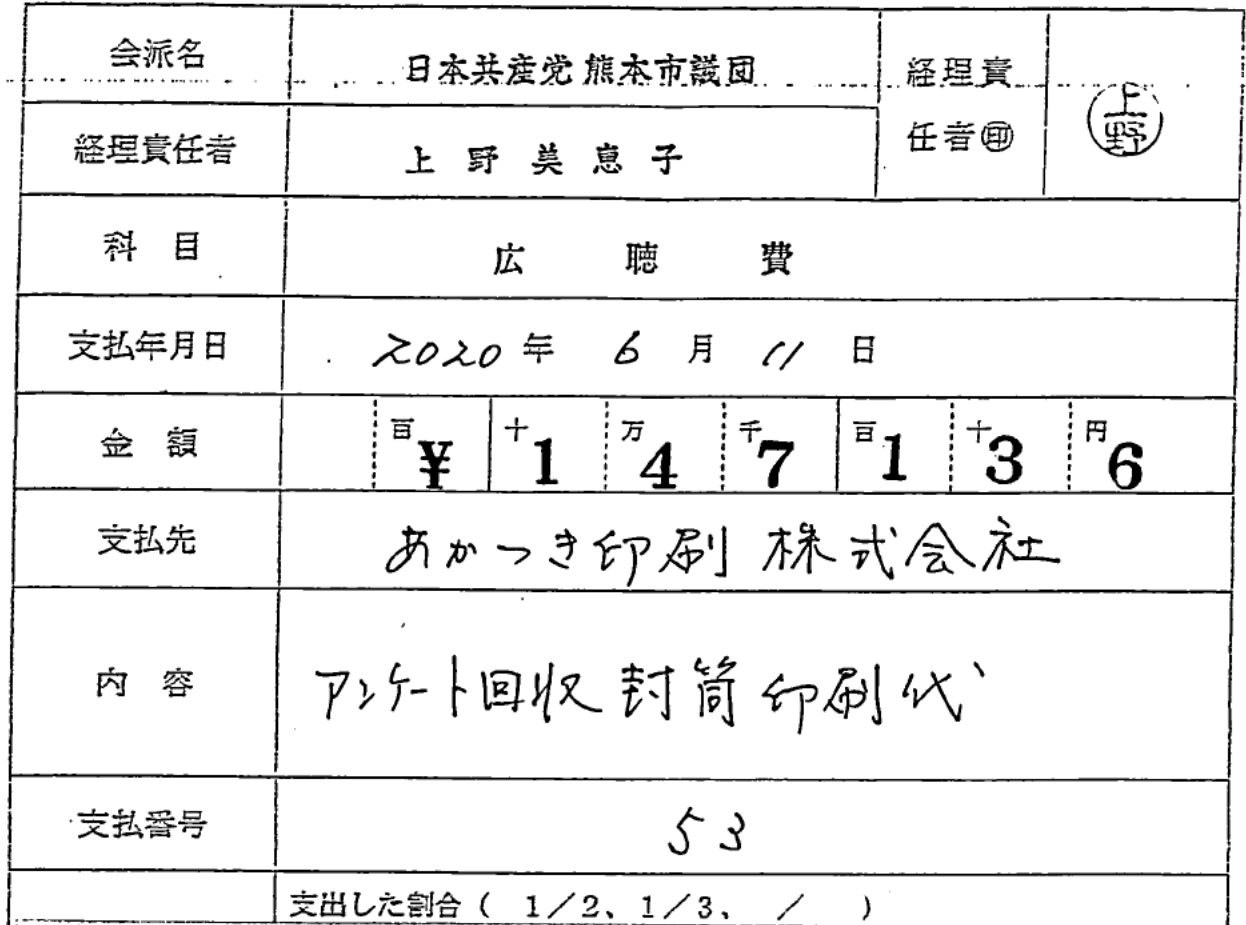 会派名 日本共産党 熊本市議団 経理責任者㊞ 上野
経理責任者 上野美恵子
科目 広聴費
支払年月日 2020年 6月 11日
金額 百¥ 十1 万4 千7 百1 十3 円6
支払先 あかつき印刷 株式会社
内容 アンケート回収封筒印刷代
支払番号 53
支出した割合( 1/2、1/3、 / )